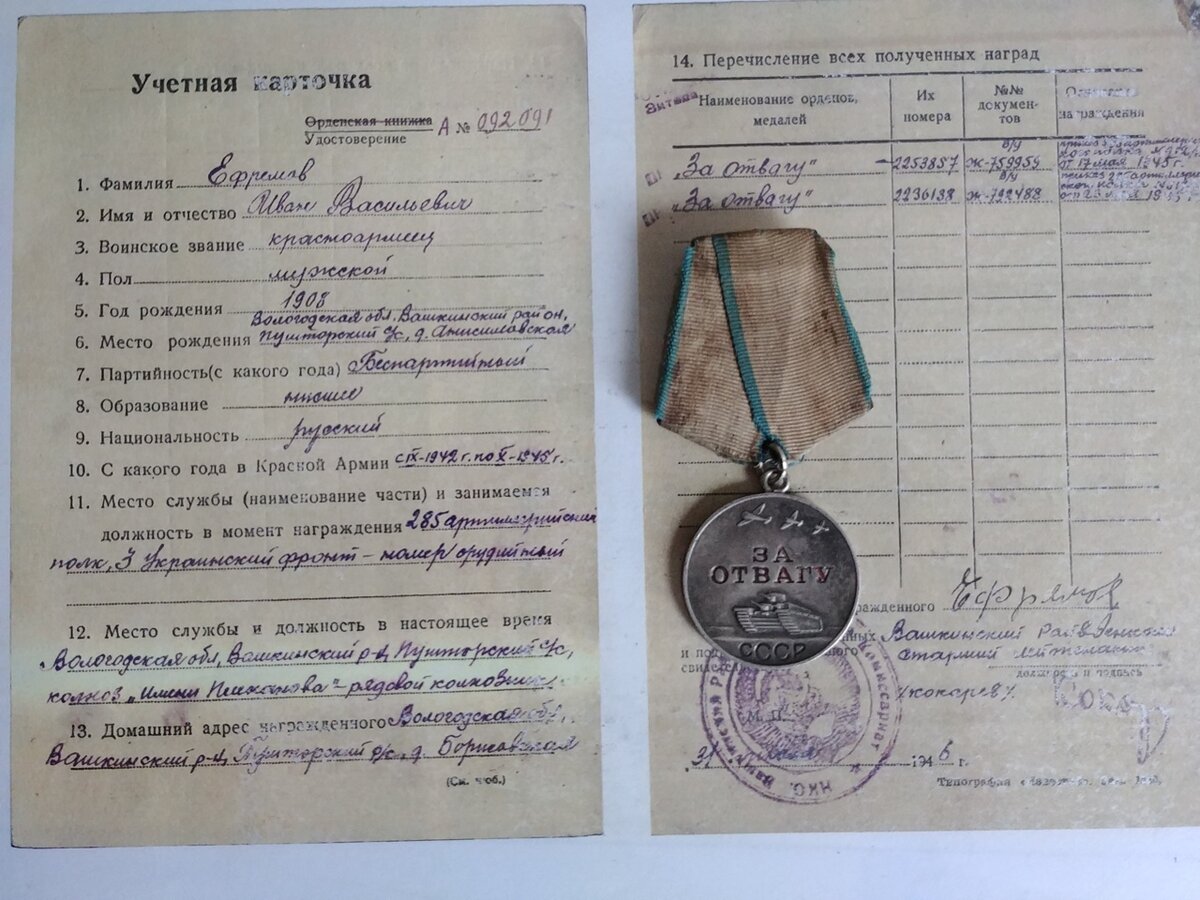 Учетная карточка
Орденская книжка
Удостоверение А № 092091
1. Фамилия Ефремов
2. Имя и отчество Иван Васильевич
3. Воинское звание красноармеец
4. Пол мужской
5. Год рождения 1908
Вологодская обл. Вашкинский район,
6. Место рождения Пушторский с/с, д. Анисимовская
7. Партийность(с какого года) Беспартийный
8. Образование низшее
9. Национальность русский
10. С какого года в Красной Армии с IX-1942 г. по X-1945 г.
11. Место службы (наименование части) и занимаемая
должность в момент награждения 285 артиллерийский
полк, 3 Украинский фронт - номер орудийный
12. Место службы и должность в настоящее время
Вологодская обл, Вашкинский р-н, Пушторский с/с,
колхоз „имени Плеханова" - рядовой колхозник
13. Домашний адрес награжденного Вологодская обл,
Вашкинский р-н, Пушторский с/с, д. Борисовская
(См. об.)
14. Перечисление всех полученных наград
Наименование орденов, медалей
Их номера
№№ документов
награждения
„За отвагу" 2253857 в/у Ж-759959 от 17 мая 1945 г.
„За отвагу" 2236138 в/у Ж-792488
ЗА
ОТВАГУ
СССР
ражденного Ефрямов
Вашкинский райвоенком
старший лейтенант
должность и подпись
/Кокарев/
М. П.
НКО
31 1946 г.
Типография